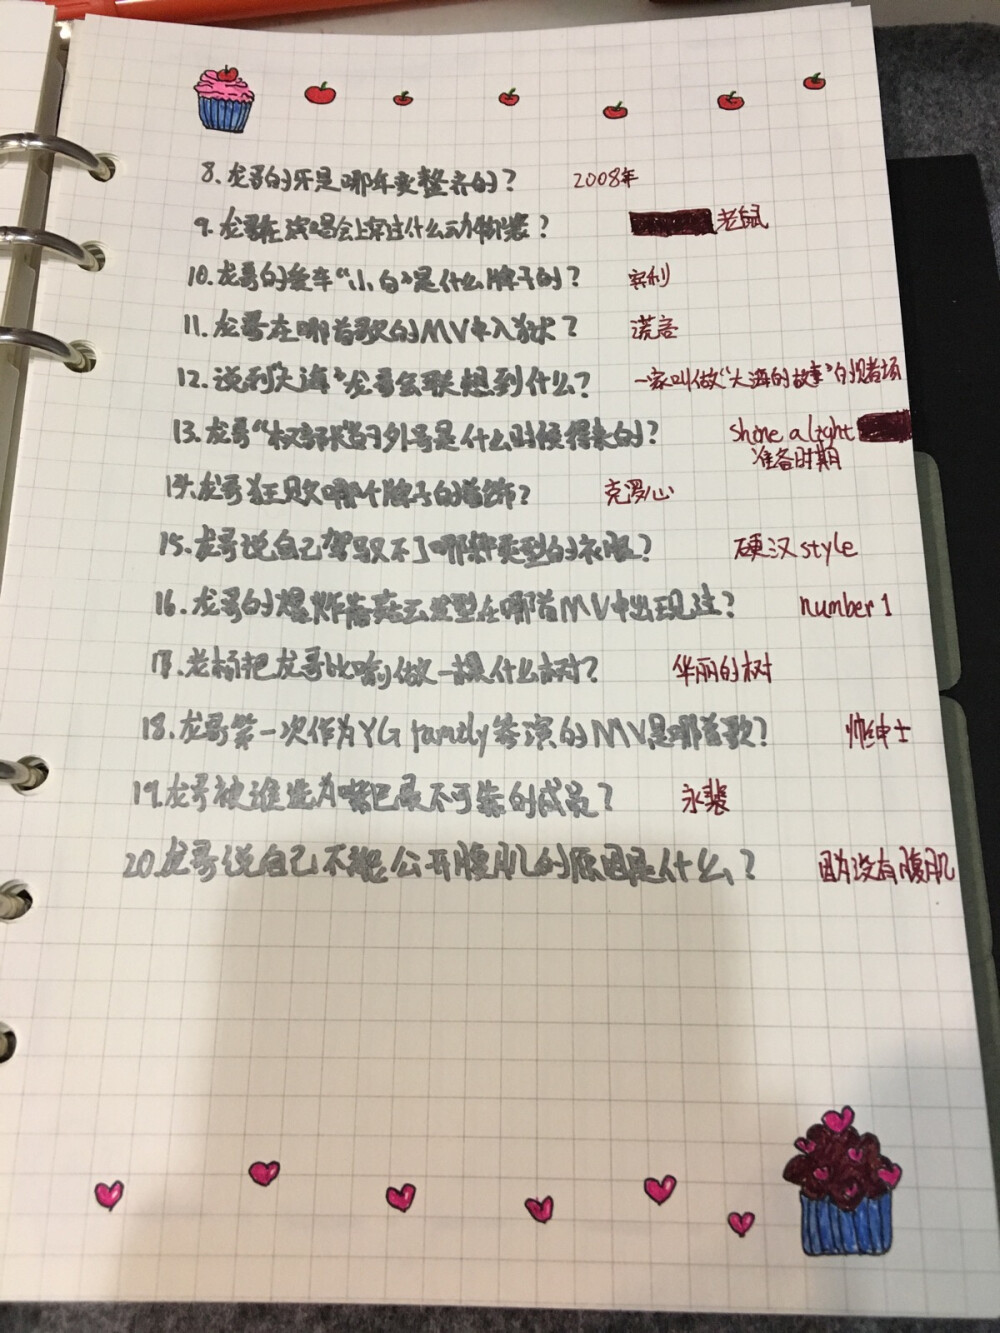 8.龙哥的牙是哪年变整齐的？ 2008年
9.龙哥在演唱会上穿过什么动物装？ 老鼠
10.龙哥的爱车“小白”是什么牌子的？ 宾利
11.龙哥在哪首歌的MV中入狱？ 谎言
12.说到“大海”龙哥会联想到什么？ 一家叫做“大海的故事”的
13.龙哥“权  ”的外号是什么时候得来的？ shine a light
准备时期
14.龙哥狂败哪个牌子的首饰？ 克罗心
15.龙哥说自己驾驭不了哪种类型的衣服？ 硬汉style
16.龙哥的爆炸蘑菇云发型在哪首MV中出现过？ number 1
17.老杨把龙哥比喻做一棵什么树？ 华丽的树
18.龙哥第一次作为YG family参演的MV是哪首歌？ 帅绅士
19.龙哥被谁选为嘴巴最不可靠的成员？ 永裴
20.龙哥说自己不能公开腹肌的原因是什么？ 因为没有腹肌